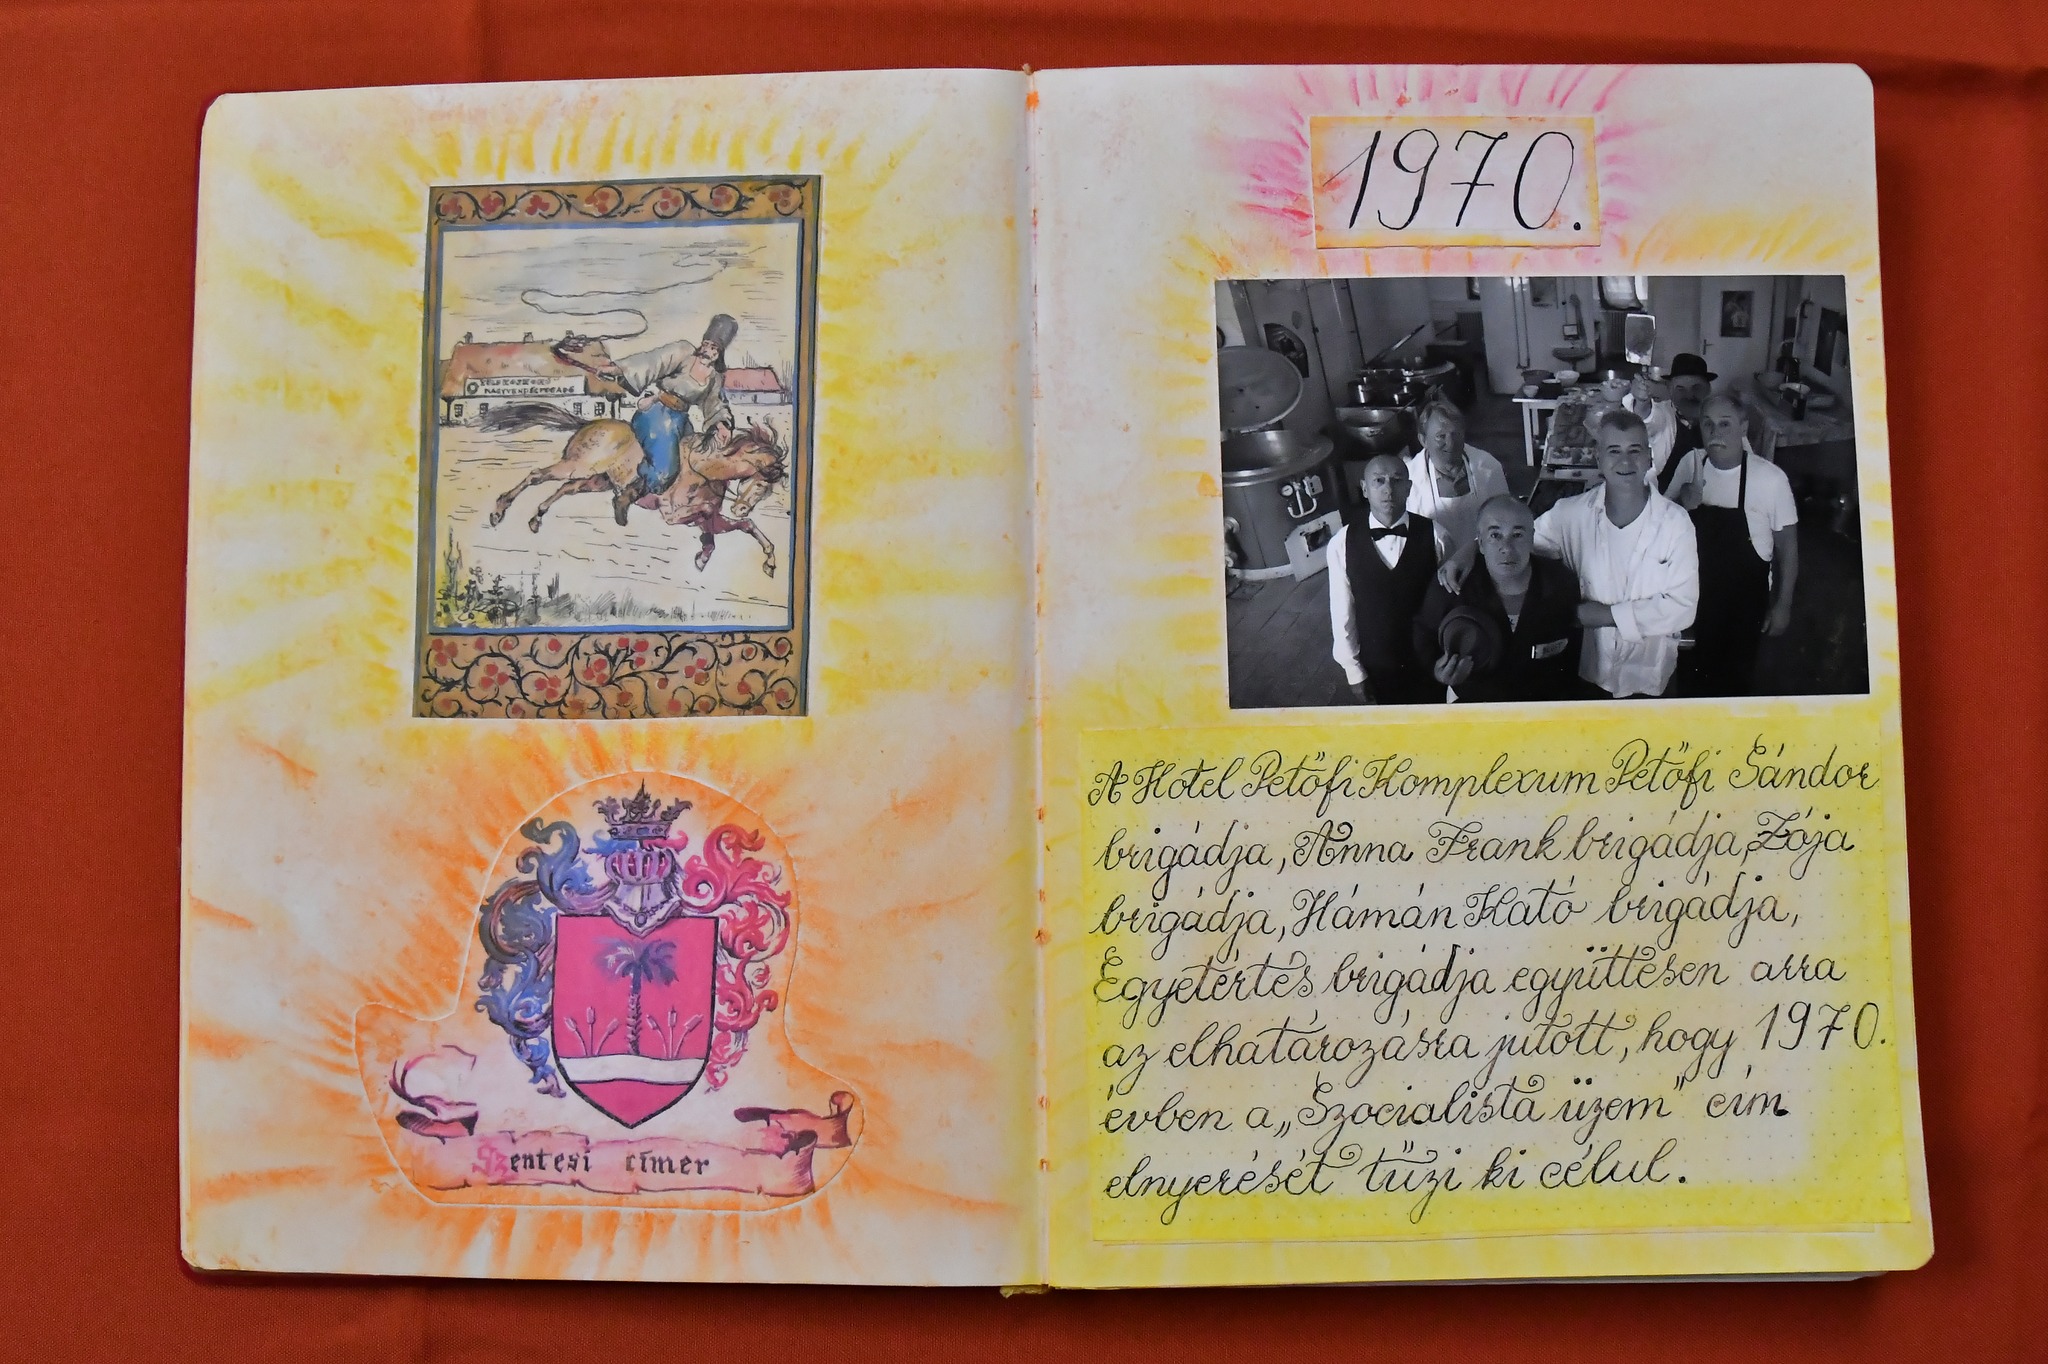 NAGYVENDÉGFOGADÓ
Szentesi címer
1970.
A Hotel Petőfi Komplexum Petőfi Sándor
brigádja, Anna Frank brigádja, Zója
brigádja, Hámán Kató brigádja,
Egyetértés brigádja együttesen arra
az elhatározásra jutott, hogy 1970.
évben a „Szocialista üzem” cím
elnyerését tűzi ki célul.